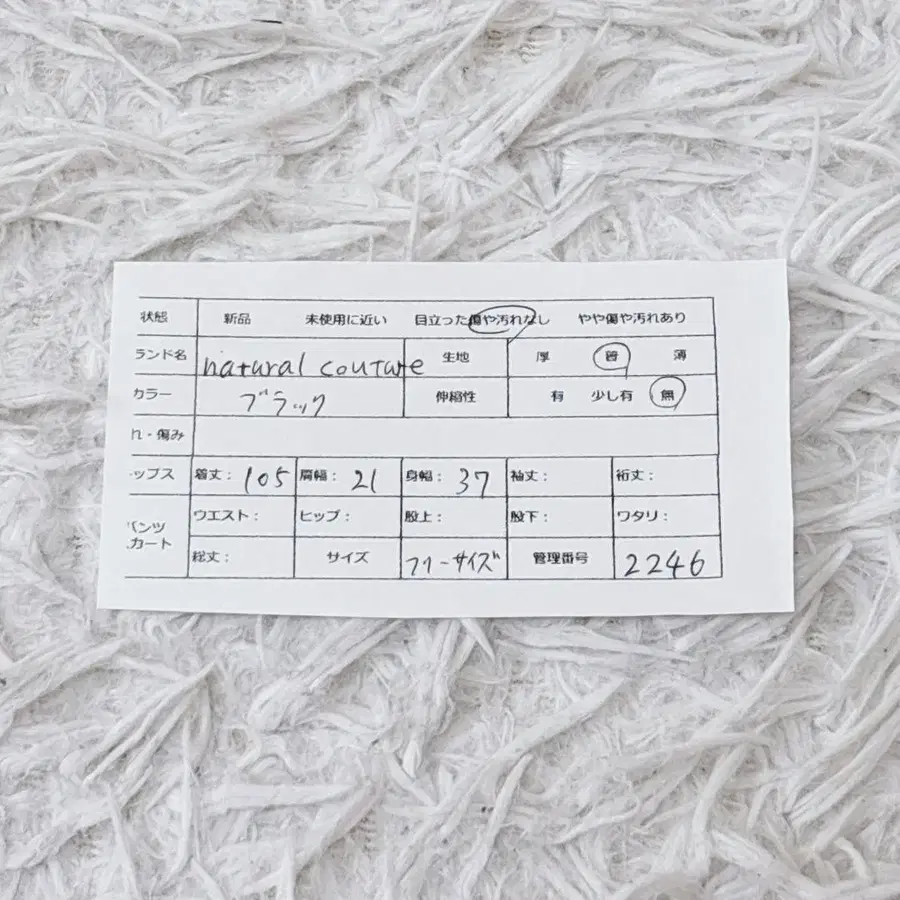 状態 新品 未使用に近い 目立った傷や汚れなし やや傷や汚れあり
ランド名 natural couture 生地 厚 普 薄
カラー ブラック 伸縮性 有 少し有 無
れ・傷み
ップス 着丈: 105 肩幅: 21 身幅: 37 袖丈: 裄丈:
パンツ ウエスト: ヒップ: 股上: 股下: ワタリ:
カート 総丈: サイズ フリーサイズ 管理番号 2246